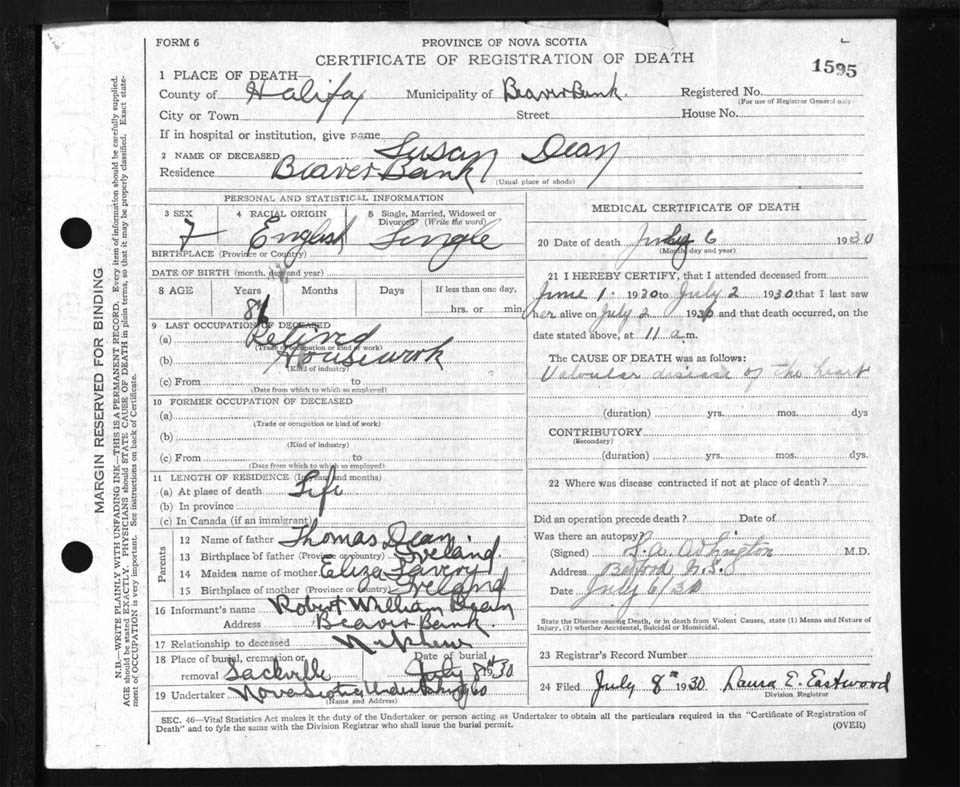 FORM 6
PROVINCE OF NOVA SCOTIA
CERTIFICATE OF REGISTRATION OF DEATH
1595
1 PLACE OF DEATH—
County of Halifax Municipality of Beaver Bank Registered No.
(For use of Registrar General only)
City or Town Street House No.
If in hospital or institution, give name
2 NAME OF DECEASED Susan Dean
Residence Beaver Bank (Usual place of abode)
PERSONAL AND STATISTICAL INFORMATION
3 SEX 4 RACIAL ORIGIN 5 Single, Married, Widowed or Divorced (Write the word)
F English Single
BIRTHPLACE (Province or Country)
DATE OF BIRTH (month, day and year)
8 AGE Years Months Days If less than one day,
hrs. or min.
9 LAST OCCUPATION OF DECEASED
(a) Retired
(Trade or occupation or kind of work)
(b) Housework
(Kind of industry)
(c) From to
(Date from which to which so employed)
10 FORMER OCCUPATION OF DECEASED
(a)
(Trade or occupation or kind of work)
(b)
(Kind of industry)
(c) From to
(Date from which to which so employed)
11 LENGTH OF RESIDENCE (In years and months)
(a) At place of death Life
(b) In province
(c) In Canada (if an immigrant)
Parents
12 Name of father Thomas Dean
13 Birthplace of father (Province or country) Ireland
14 Maiden name of mother Eliza Lavery
15 Birthplace of mother (Province or country) Ireland
16 Informant's name Robert William Dean
Address Beaver Bank.
17 Relationship to deceased Nephew
18 Place of burial, cremation or removal Sackville Date of burial July 8th 1930
19 Undertaker Nova Scotia Undertaking Co
(Name and Address)
MEDICAL CERTIFICATE OF DEATH
20 Date of death July 6 1930
(Month, day and year)
21 I HEREBY CERTIFY, that I attended deceased from
June 1. 1930 to July 2 1930 that I last saw
her alive on July 2 1930 and that death occurred, on the
date stated above, at 11 a.m.
The CAUSE OF DEATH was as follows:
Valvular disease of the heart
(duration) yrs. mos. dys
CONTRIBUTORY
(Secondary)
(duration) yrs. mos. dys.
22 Where was disease contracted if not at place of death?
Did an operation precede death? Date of
Was there an autopsy?
(Signed) M.D.
Address Bedford N.S.
Date July 6/30
State the Disease causing Death, or in death from Violent Causes, state (1) Means and Nature of
Injury, (2) whether Accidental, Suicidal or Homicidal.
23 Registrar's Record Number
24 Filed July 8th 1930 Laura E. Eastwood
Division Registrar
SEC. 46—Vital Statistics Act makes it the duty of the Undertaker or person acting as Undertaker to obtain all the particulars required in the "Certificate of Registration of
Death" and to fyle the same with the Division Registrar who shall issue the burial permit. (OVER)
MARGIN RESERVED FOR BINDING
N.B.—WRITE PLAINLY WITH UNFADING INK—THIS IS A PERMANENT RECORD. Every item of information should be carefully supplied.
AGE should be stated EXACTLY. PHYSICIANS should STATE CAUSE OF DEATH in plain terms, so that it may be properly classified. Exact state-
ment of OCCUPATION is very important. See instructions on back of Certificate.